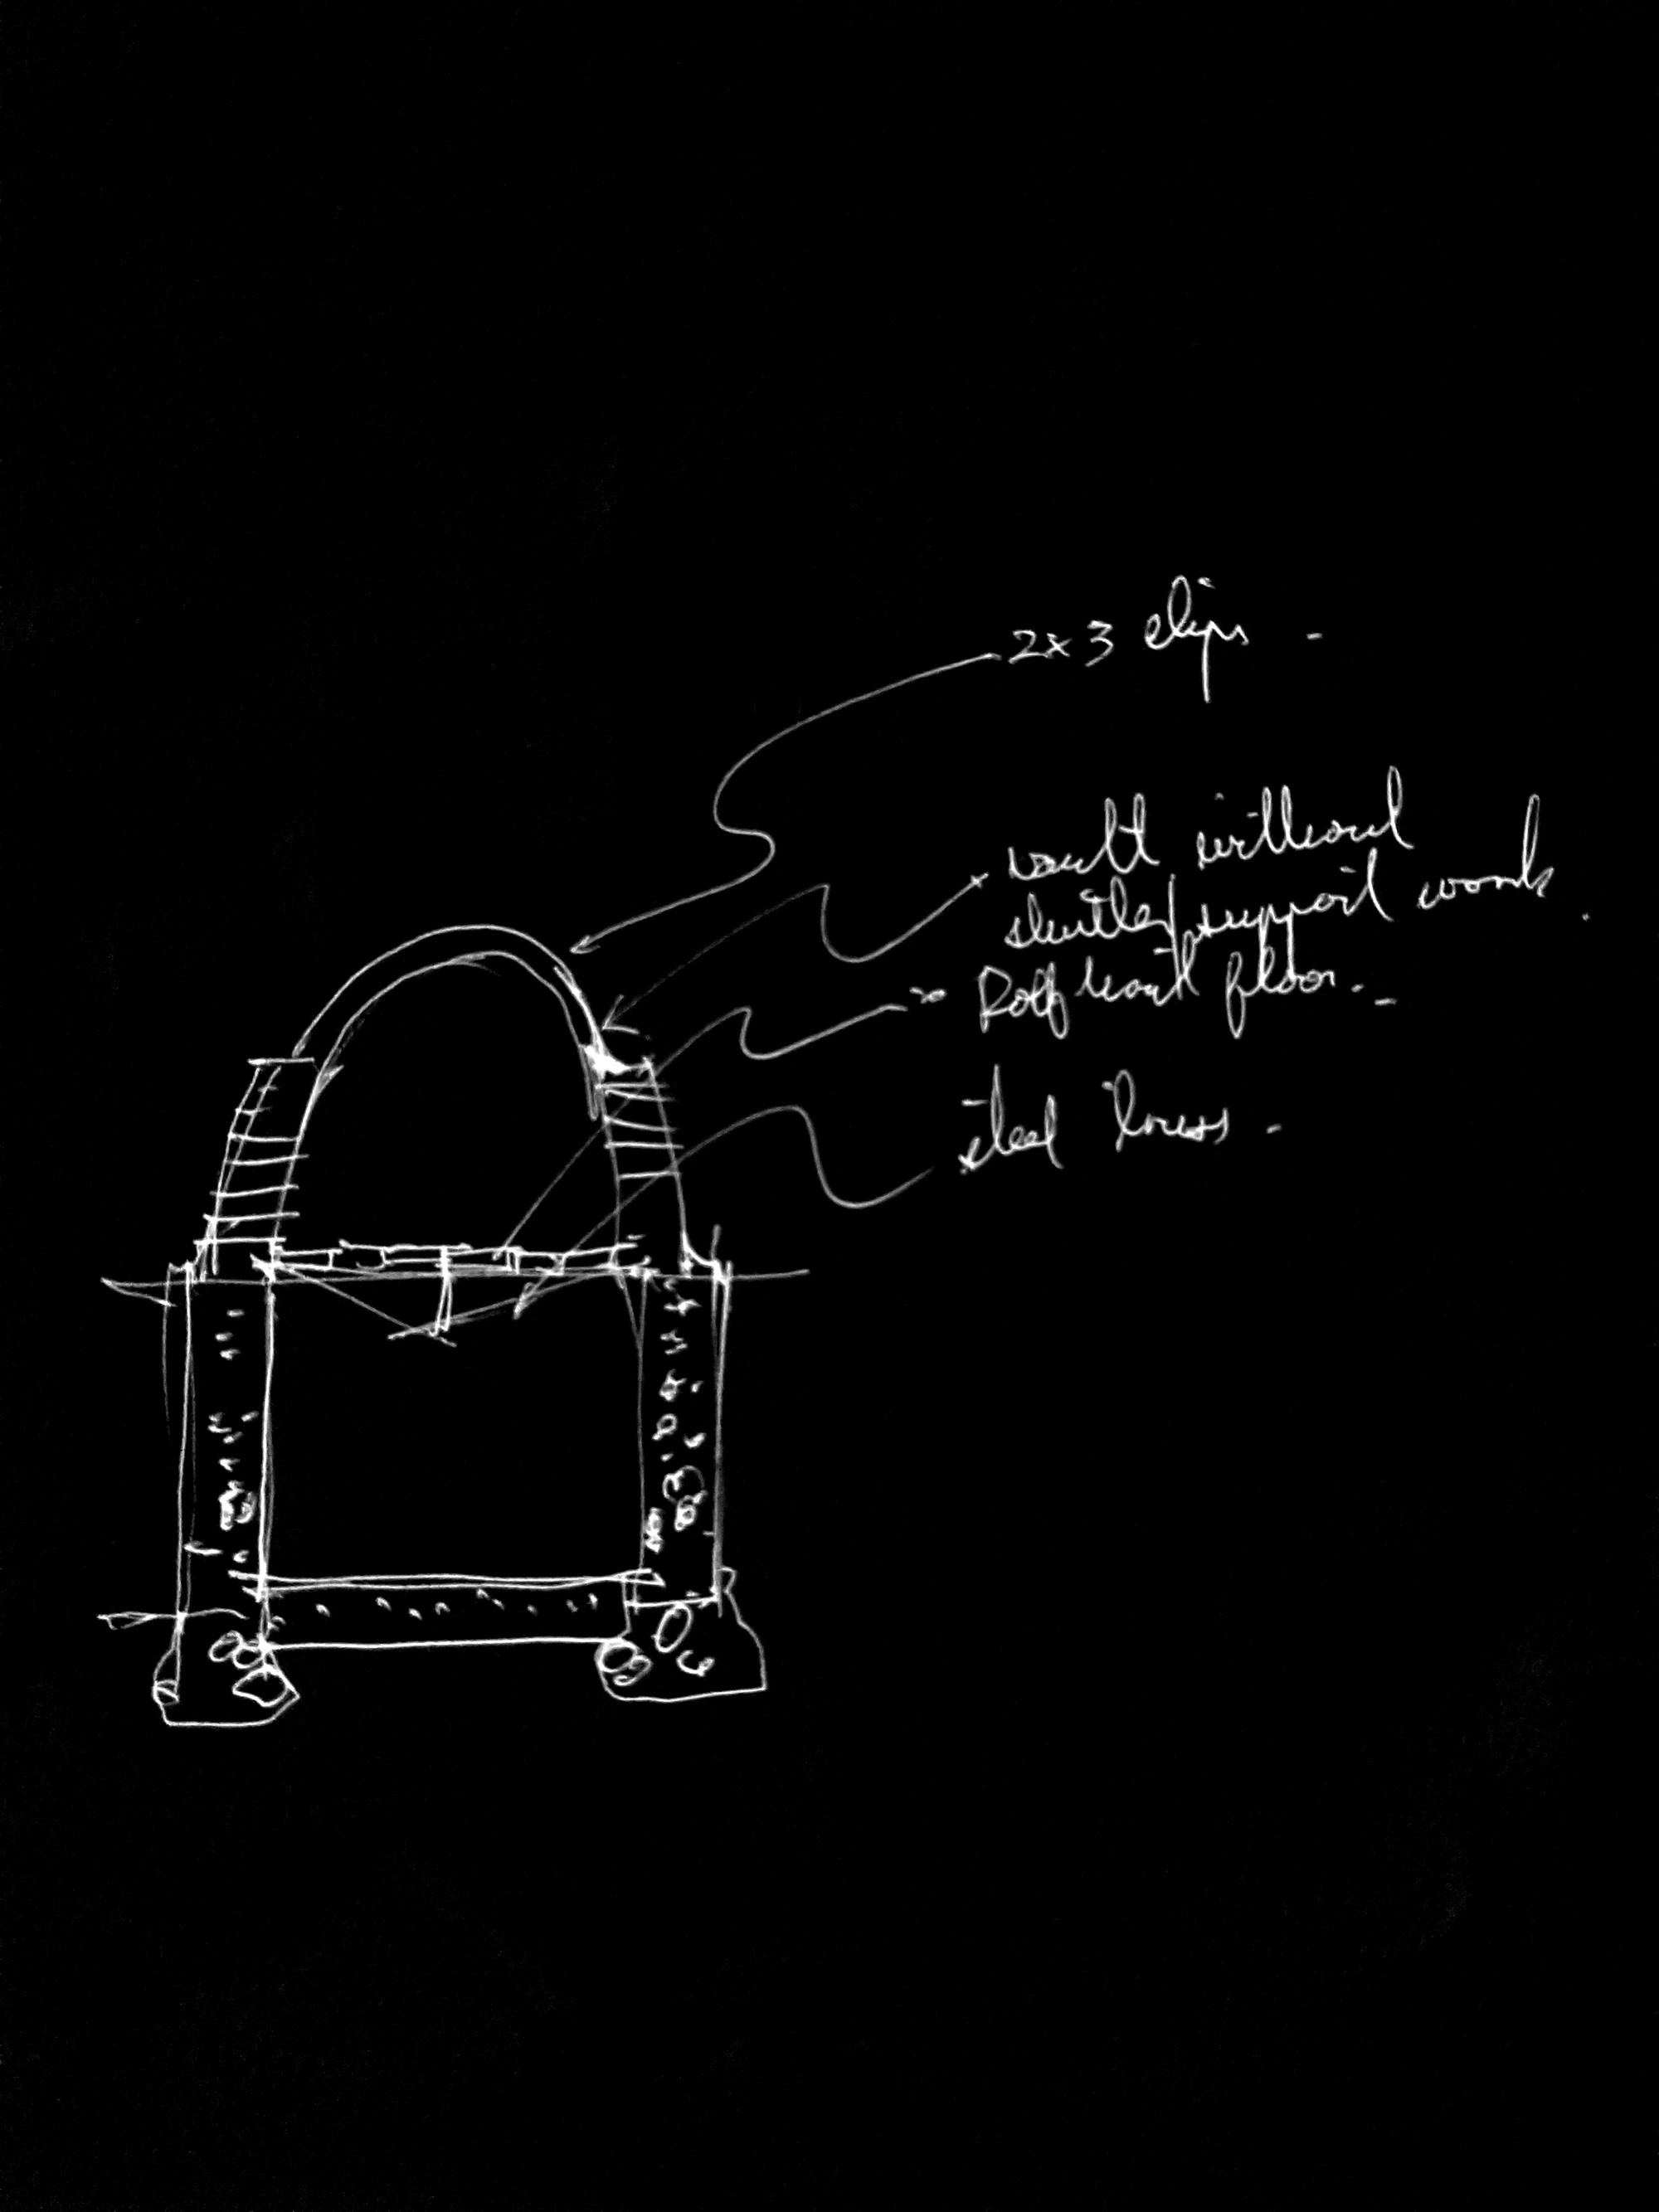 2x3 clips -
vault without
shutter/support work.
Rolf vault floor. -
steel truss -